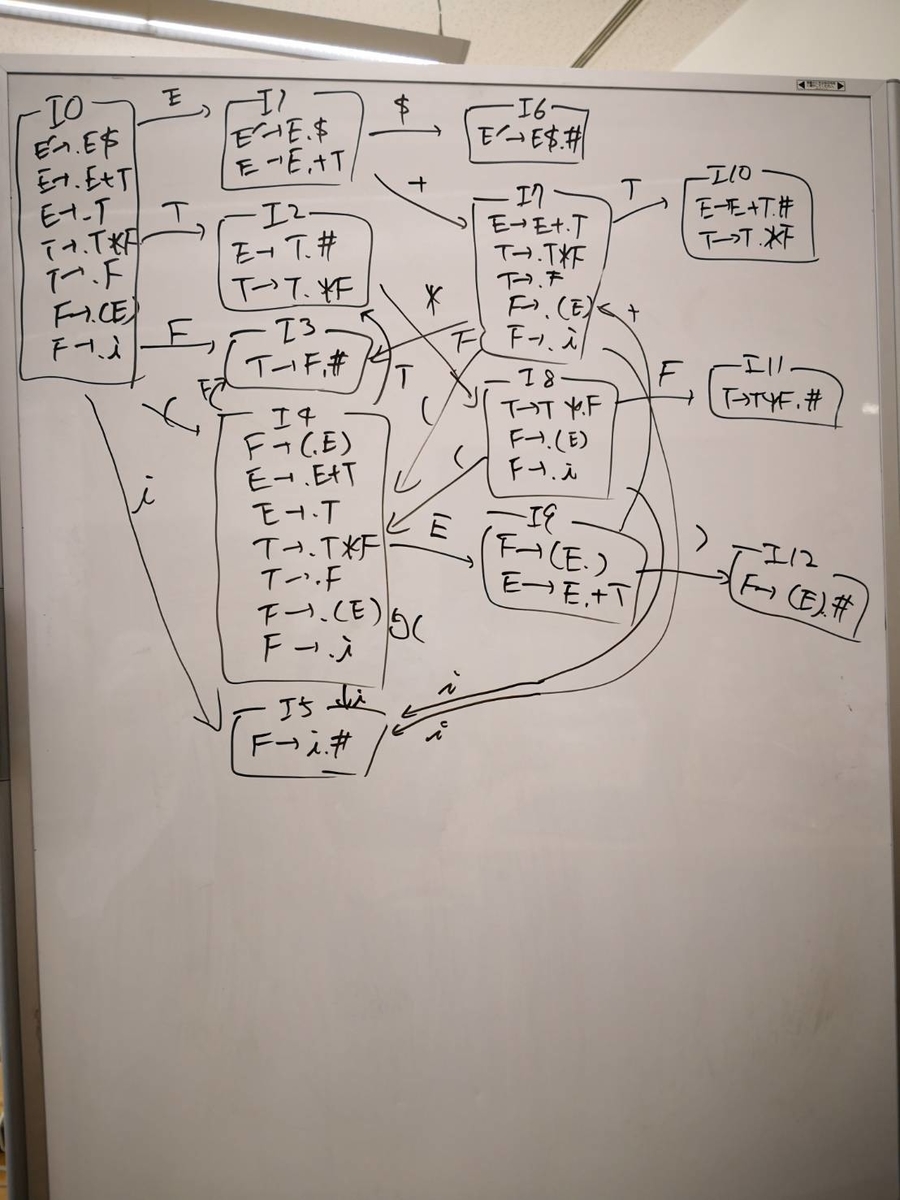 I0
E'→.E$
E→.E+T
E→.T
T→.T*F
T→.F
F→.(E)
F→.i
E
I1
E'→E.$
E→E.+T
$
I6
E'→E$.#
+
T
I2
E→T.#
T→T.*F
*
I7
E→E+.T
T→.T*F
T→.F
F→.(E)
F→.i
T
I10
E→E+T.#
T→T.*F
+
F
I3
T→F.#
F
T
F
(
(
I8
T→T*.F
F→.(E)
F→.i
F
I11
T→T*F.#
(
I4
F→(.E)
E→.E+T
E→.T
T→.T*F
T→.F
F→.(E)
F→.i
(
E
I9
F→(E.)
E→E.+T
)
I12
F→(E).#
i
i
I5
F→i.#
i
i